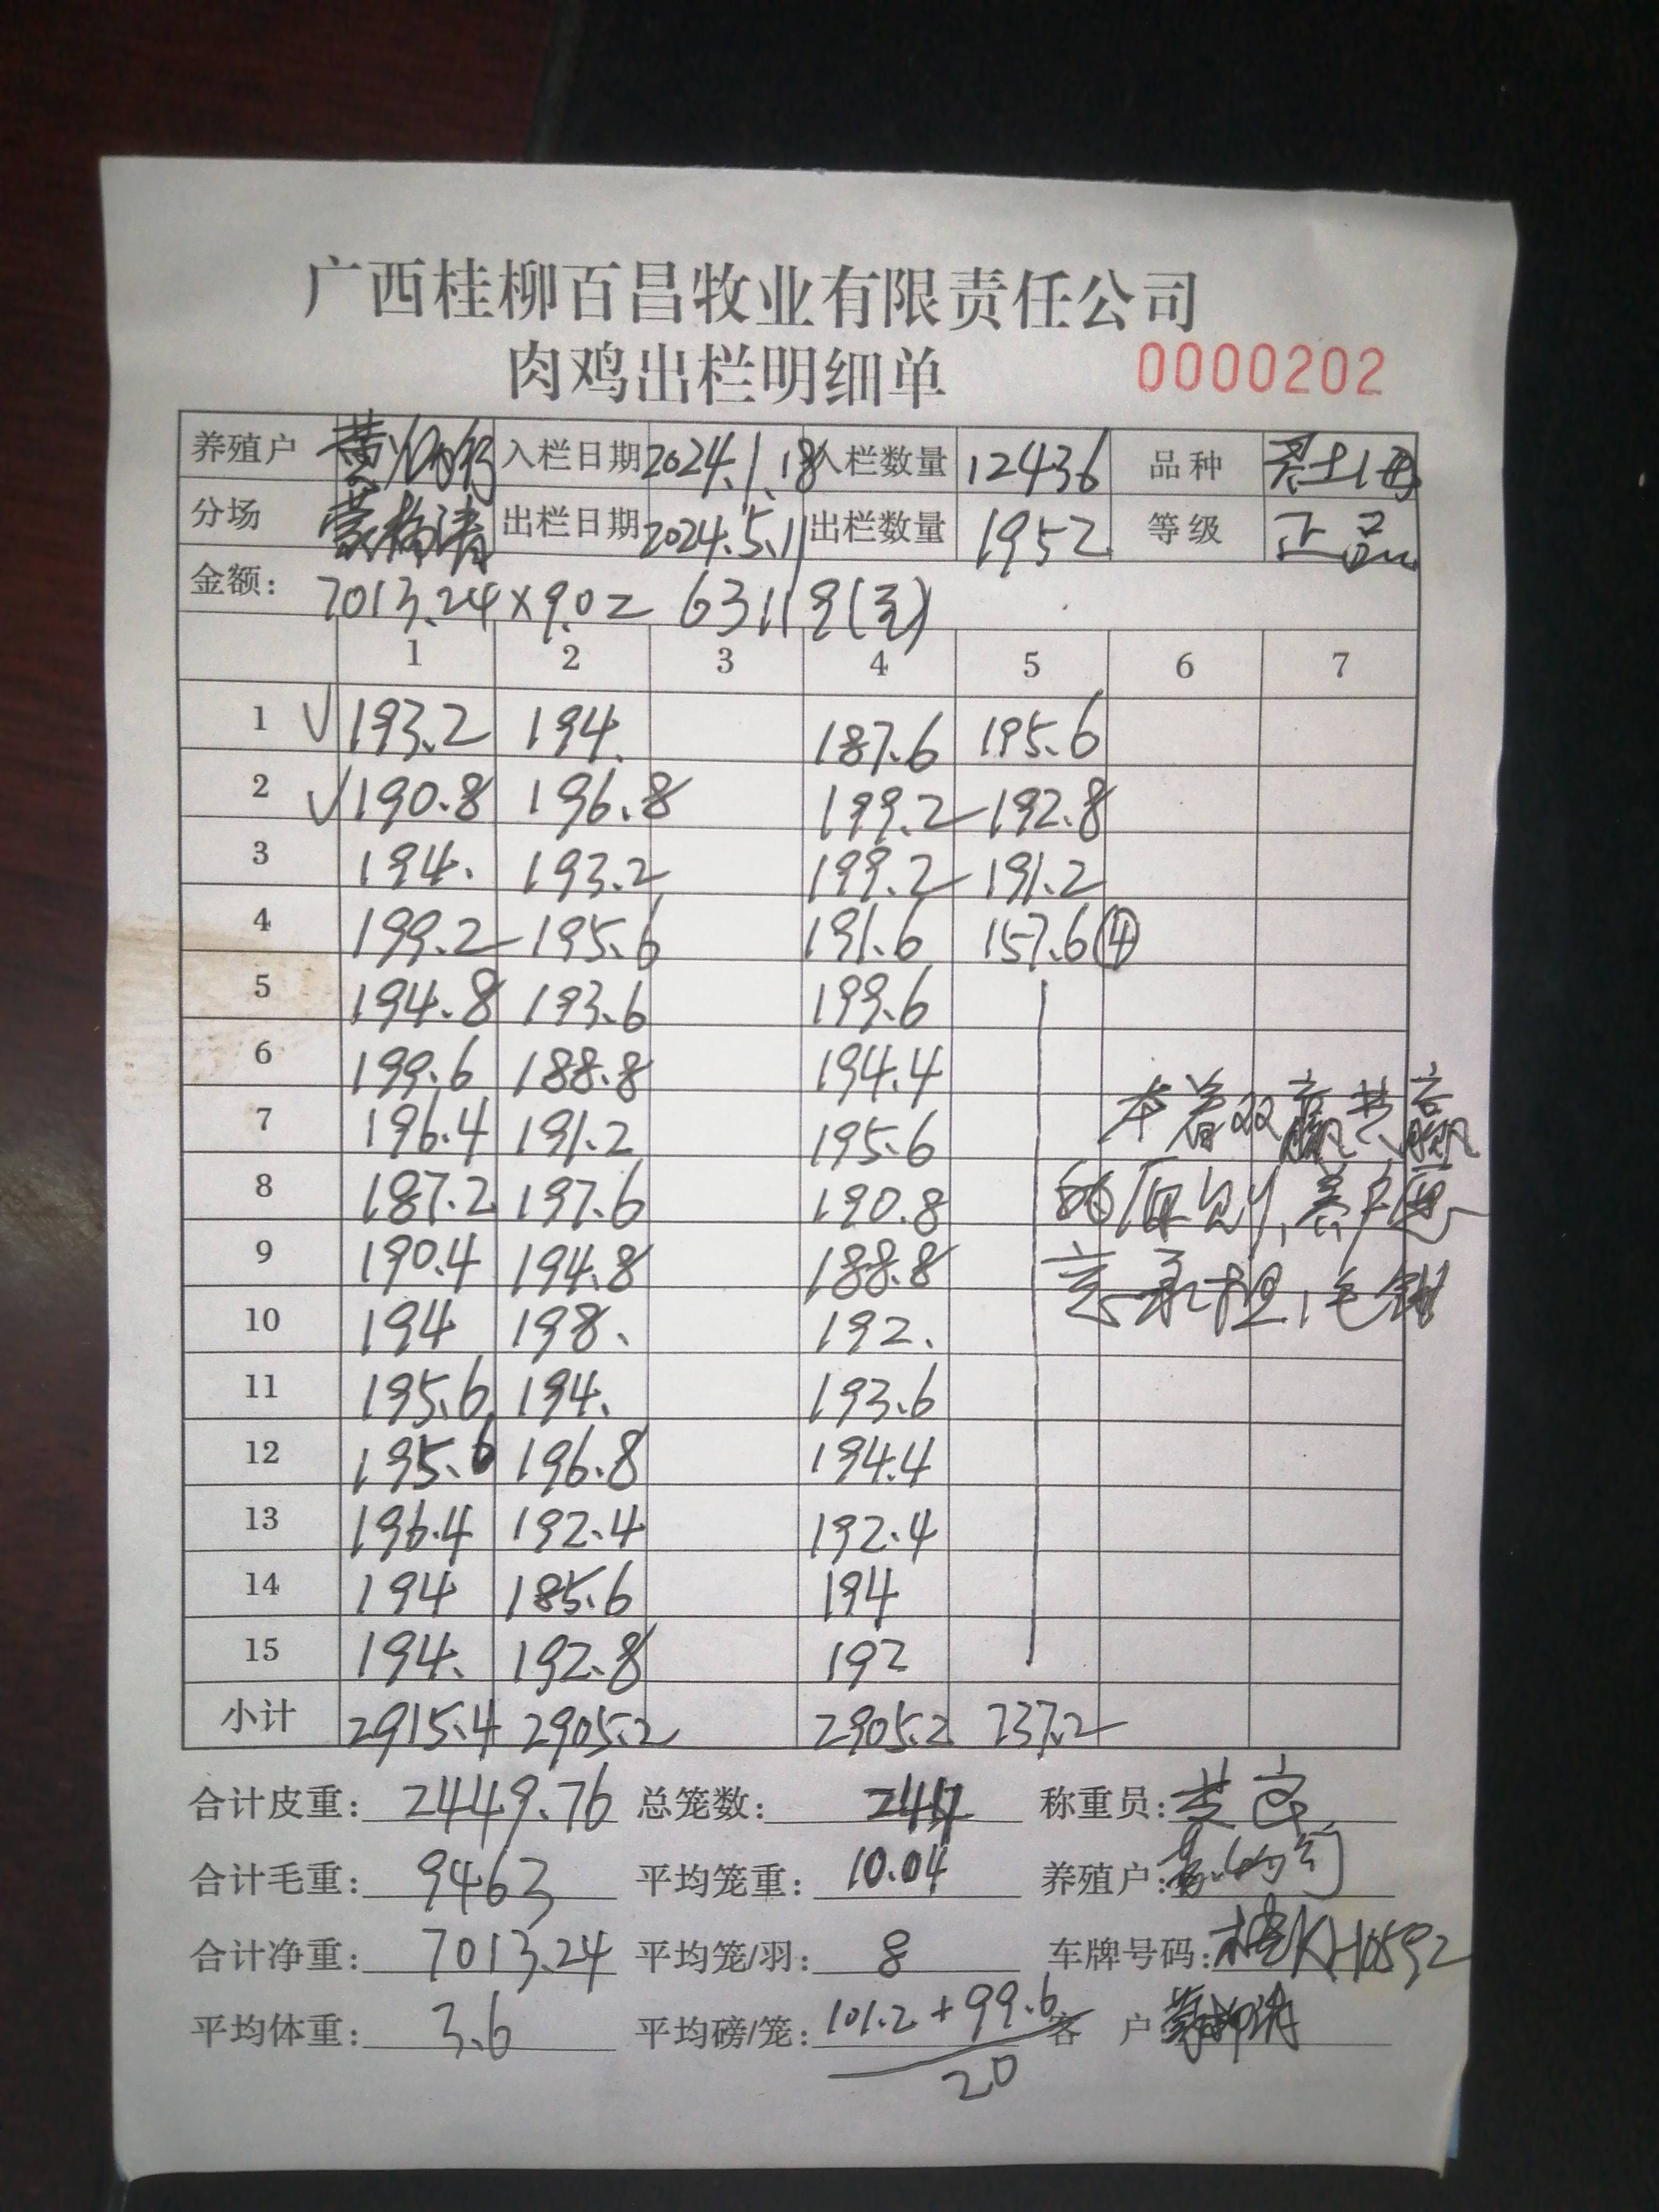 广西桂柳百昌牧业有限责任公司
肉鸡出栏明细单 0000202
养殖户 黄 入栏日期 2024.1.18 入栏数量 12436 品种 土
分场 蒙 出栏日期 2024.5.11 出栏数量 1952 等级 正品
金额: 7013.24×9.0= 63119(元)
1 2 3 4 5 6 7
1 √ 193.2 194. 187.6 195.6
2 √ 190.8 196.8 199.2 192.8
3 194. 193.2 199.2 191.2
4 199.2 195.6 191.6 157.6 ④
5 194.8 193.6 199.6
6 199.6 188.8 194.4
7 196.4 191.2 195.6 本着双赢共赢
8 187.2 197.6 190.8 的原则,养户愿
9 190.4 194.8 188.8 意承担,毛
10 194 198. 192.
11 195.6 194. 193.6
12 195.6 196.8 194.4
13 196.4 192.4 192.4
14 194 185.6 194
15 194. 192.8 192
小计 2915.4 2905.2 2905.2 737.2
合计皮重: 2449.76 总笼数: 244 称重员:
合计毛重: 9463 平均笼重: 10.04 养殖户:
合计净重: 7013.24 平均笼/羽: 8 车牌号码: 桂KH0592
平均体重: 3.6 平均磅/笼: 101.2+99.6 客 户
20